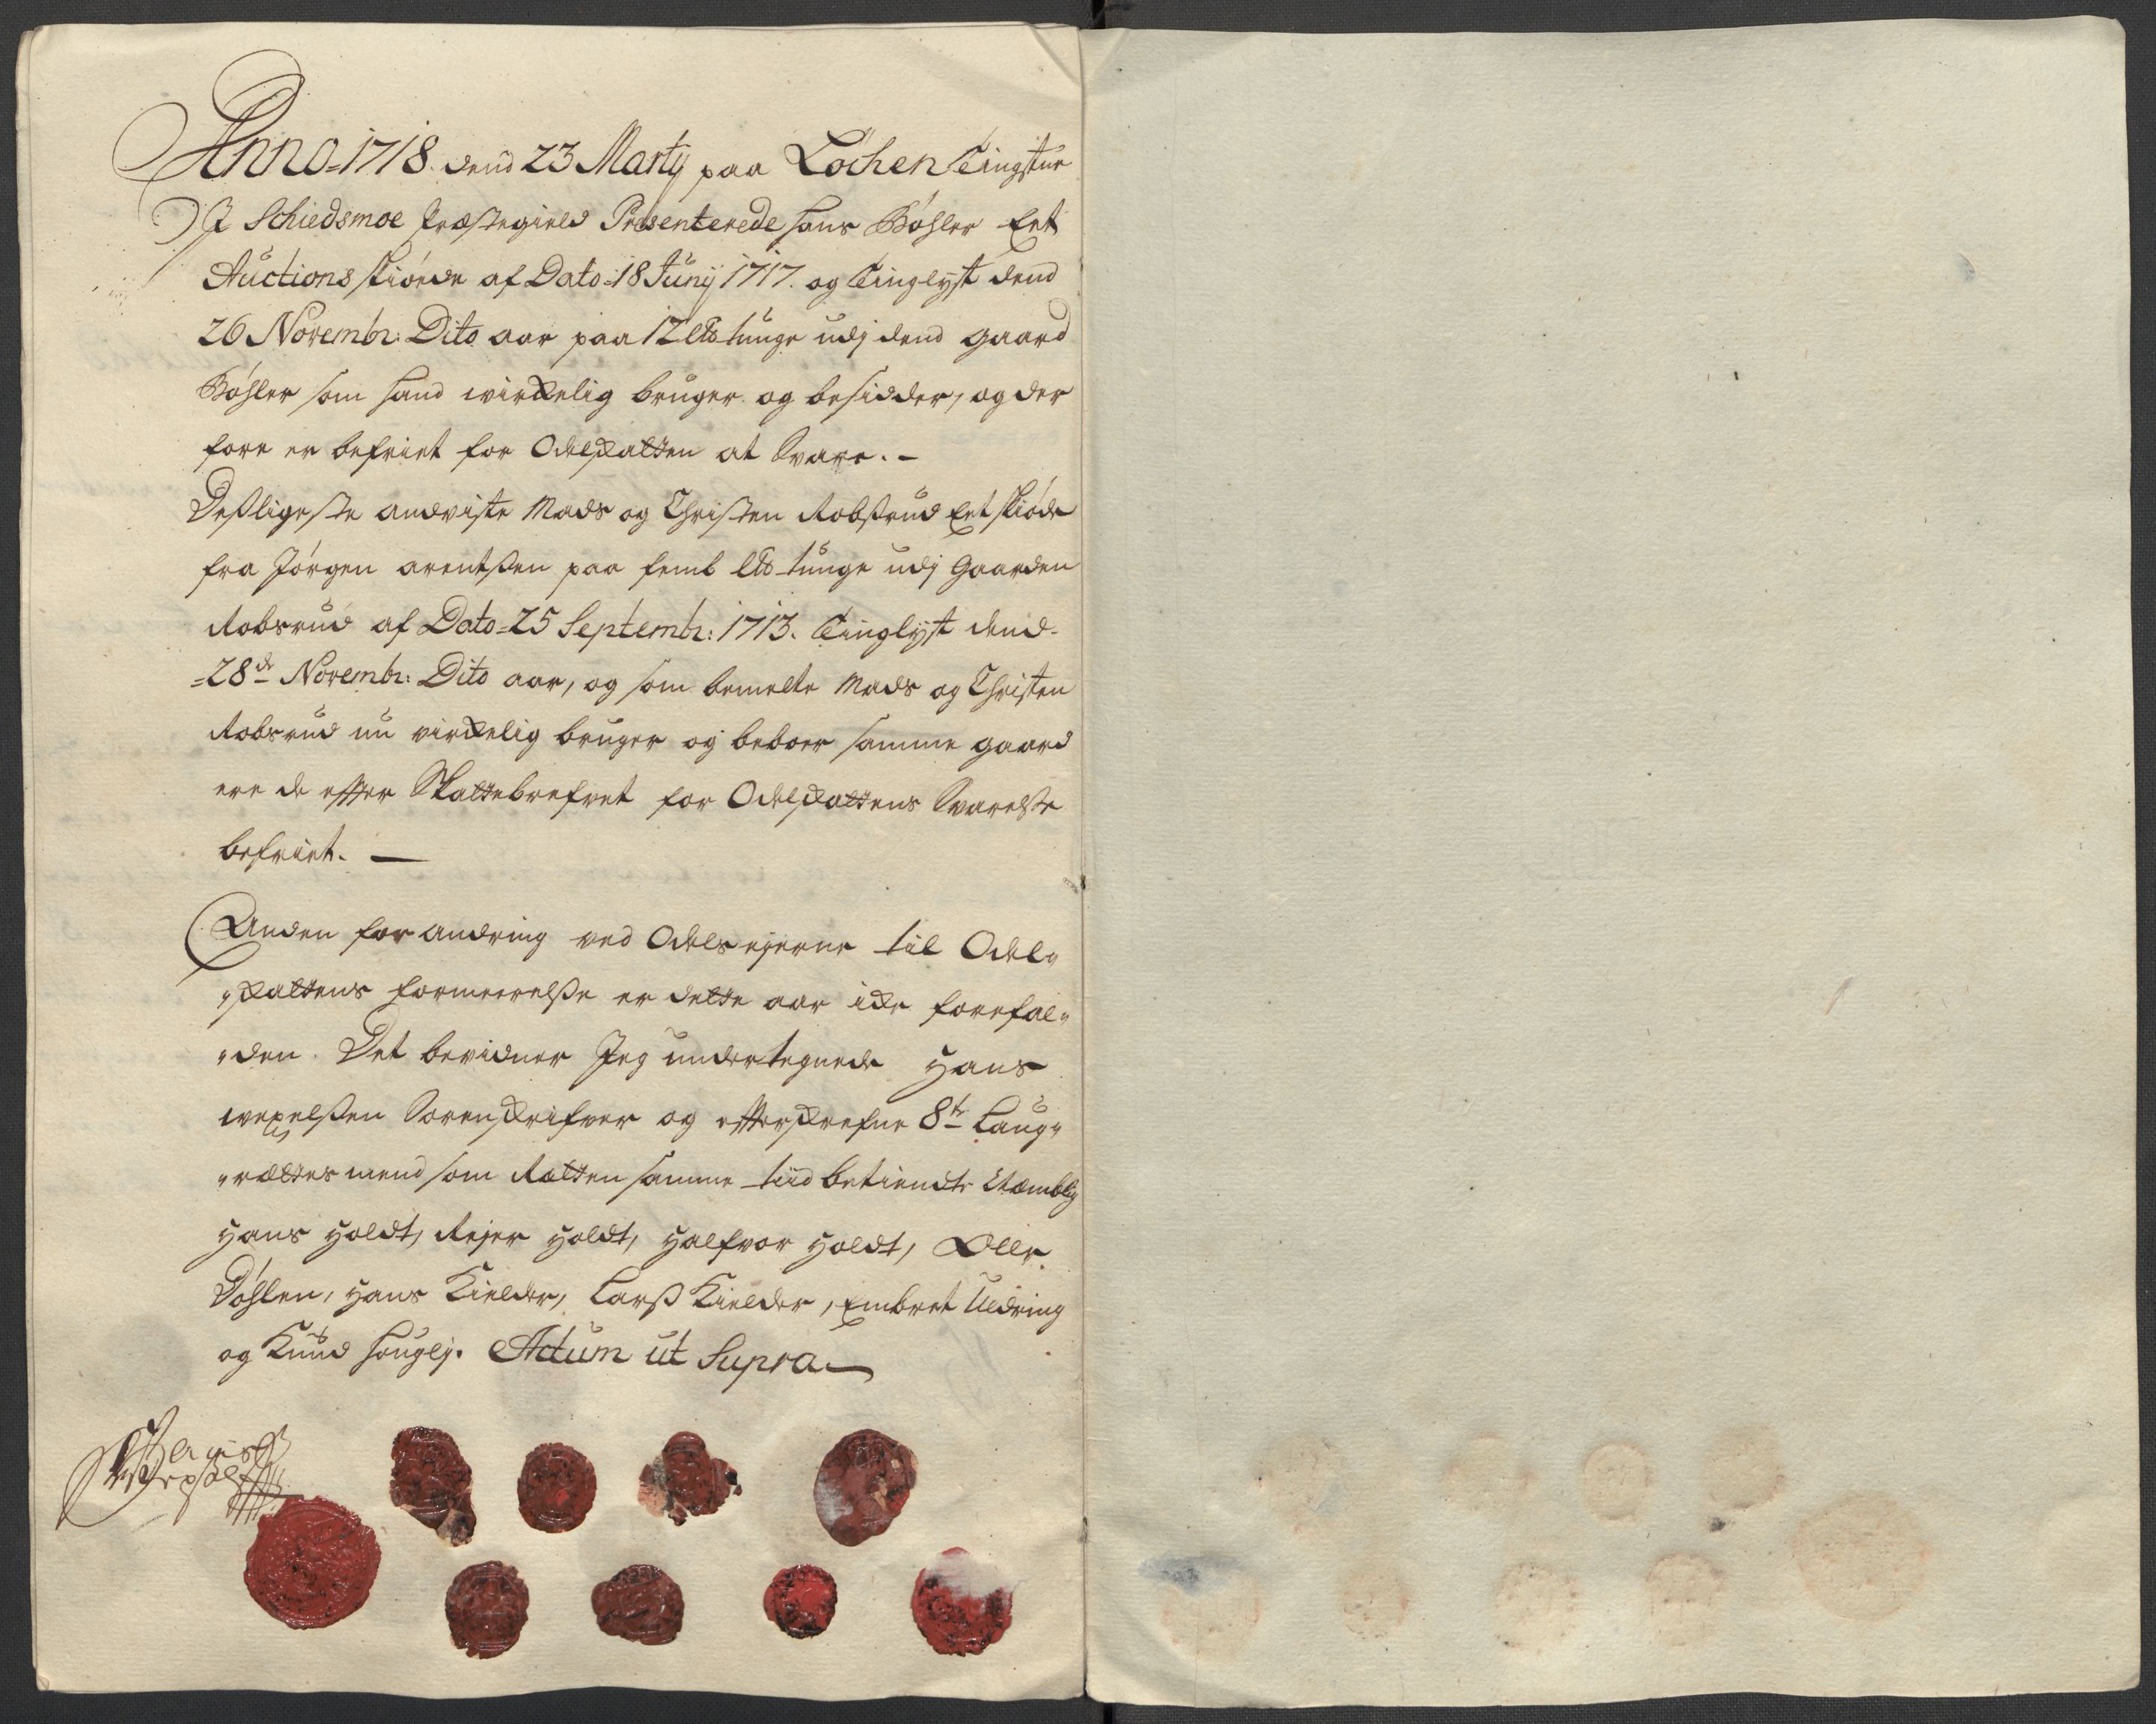 Anno 1718. dend 23 Martij paa Løchen Tingstue
J Schiedsmoe Præstegield Præsenterede hans Bøhler Eet
Auctions skiøede af Dato 18 Junij 1717. og Tinglyst dend
26 Novembr: Dito aar paa 12 lb tunge udj dend gaard
Bøhler som hand wirkelig bruger og besidder, og der
fore er befriet for Odelskatten at Svare. -
Desligeste andviste Mads og Christen Robsrud Eet skiøde
fra Jørgen arentsen paa femb lb tunge udj Gaarden
Robsrud af Dato 25 Septembr: 1713. Tinglyst dend-
=28de Novembr: Dito aar, og som bemelte Mads og Christen
Robsrud nu virkelig bruger og beboer samme gaard
ere de effter Skattebrefvet for Odelskattens Svarelse
befriet. —
Anden forandring ved Odelsejerne til Odel„
„skattens formeerelse er dette aar icke forefal„
„den. Det bevidner Jeg undertegnede Hans
wexelsen Sorenskrifver og effterskrefne 8te Laug„
„rættes mend som Rætten samme tiid betiendte Næmblig
Hans Holdt, Rejer Holdt, Halfvor Holdt, Olle
Døhlen, Hans Kielder, Lars Kielder, Embret Uldring
og Knud hougej. Actum ut Supra